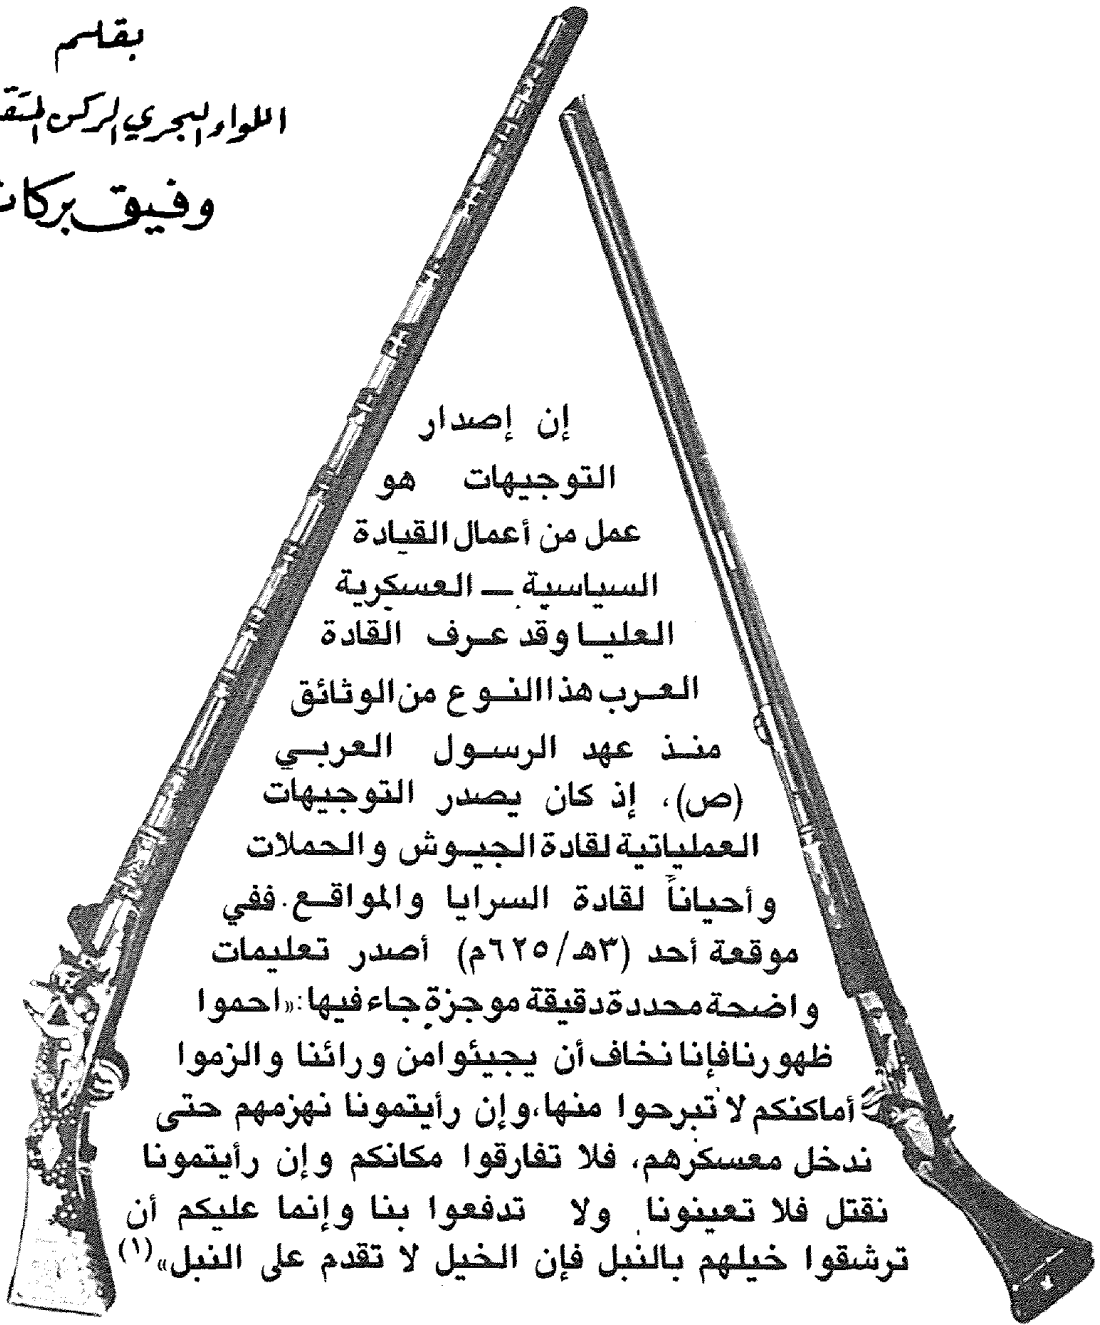 بقلم
اللواء البحري الركن
وفيق
إن إصدار
التوجيهات هو
عمل من أعمال القيادة
السياسية ــ العسكرية
العليا وقد عرف القادة
العرب هذا النوع من الوثائق
منذ عهد الرسول العربي
(ص)، إذ كان يصدر التوجيهات
العملياتية لقادة الجيوش والحملات
وأحياناً لقادة السرايا والمواقع. ففي
موقعة أحد (٣هـ/٦٢٥م) أصدر تعليمات
واضحة محددة دقيقة موجزة جاء فيها: «احموا
ظهورنا فإنا نخاف أن يجيئوا من ورائنا والزموا
أماكنكم لا تبرحوا منها، وإن رأيتمونا نهزمهم حتى
ندخل معسكرهم، فلا تفارقوا مكانكم وإن رأيتمونا
نقتل فلا تعينونا ولا تدفعوا بنا وإنما عليكم أن
ترشقوا خيلهم بالنبل فإن الخيل لا تقدم على النبل» (١)